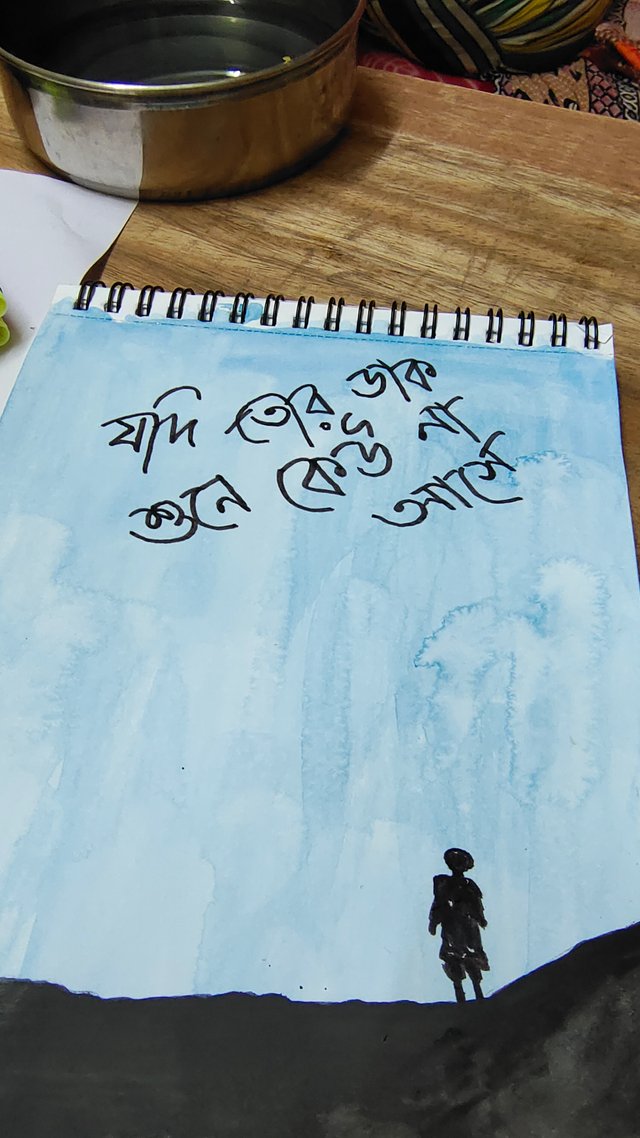 যদি তোর ডাক
শুনে কেউ না
আসে